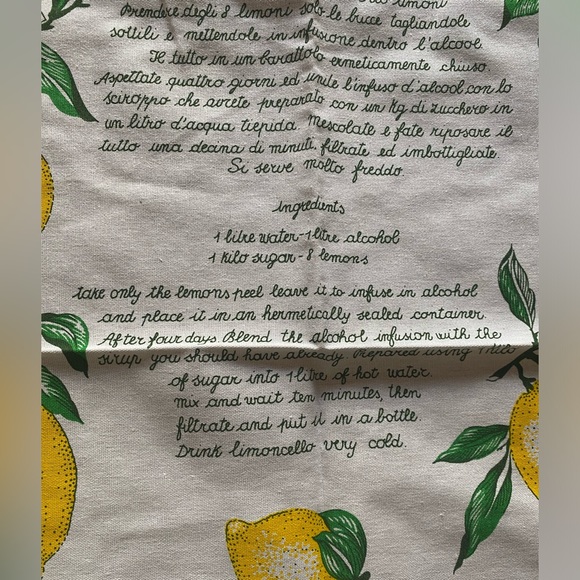 limoni
Prendere degli 8 limoni solo le bucce tagliandole
sottili e mettendole in infusione dentro l'alcool
Il tutto in un barattolo ermeticamente chiuso.
Aspettate quattro giorni ed unite l'infuso d'alcool con lo
sciroppo che avrete preparato con un Kg di zucchero in
un litro d'acqua tiepida. Mescolate e fate riposare il
tutto una decina di minuti, filtrate ed imbottigliate
Si serve molto freddo.
ingredients
1 litre water-1 litre alcohol
1 kilo sugar-8 lemons
take only the lemons peel leave it to infuse in alcohol
and place it in an hermetically sealed container.
After four days. Blend the alcohol infusion with the
sirup you should have already prepared using 1 kilo
of sugar into 1 litre of hot water.
mix and wait ten minutes, then
filtrate and put it in a bottle.
Drink limoncello very cold.